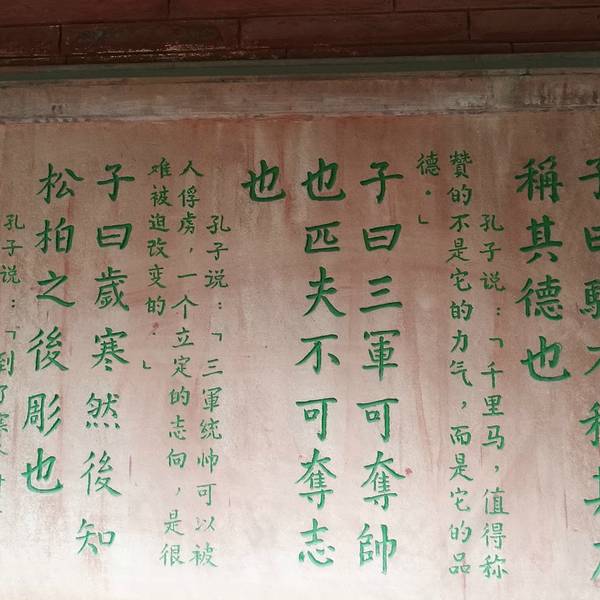 子曰驥不稱其力
稱其德也
孔子说：「千里马，值得称
赞的不是它的力气，而是它的品
德。」
子曰三軍可奪帥
也匹夫不可奪志
也
孔子说：「三軍统帅可以被
人俘虏，一个立定的志向，是很
难被迫改变的．」
子曰歲寒然後知
松柏之後彫也
孔子说：「到了